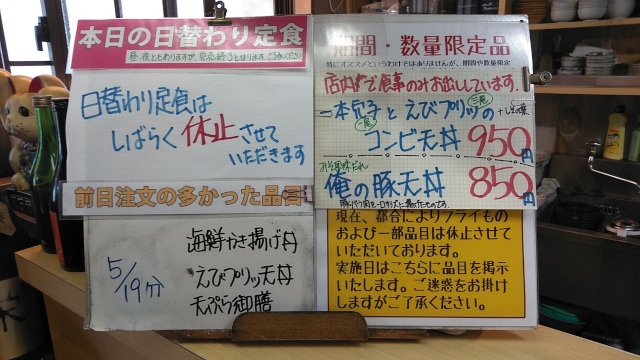 本日の日替わり定食
日替わり定食は
しばらく休止させて
いただきます
前日注文の多かった品目
5/19分
海鮮かき揚げ丼
えびプリッ天丼
天ぷら御膳
期間・数量限定品
特にオススメというわけではありませんが、期間や数量限定
店内で食事のみお出ししています。
一本穴子とえびプリッの
一尾
三尾
+しその葉
コンビ天丼 950円
みそ風味だれ
俺の豚天丼 850円
現在、都合によりフライもの
および一部品目は休止させて
いただいております。
実施日はこちらに品目を掲示
いたします。ご迷惑をお掛け
しますがご了承ください。